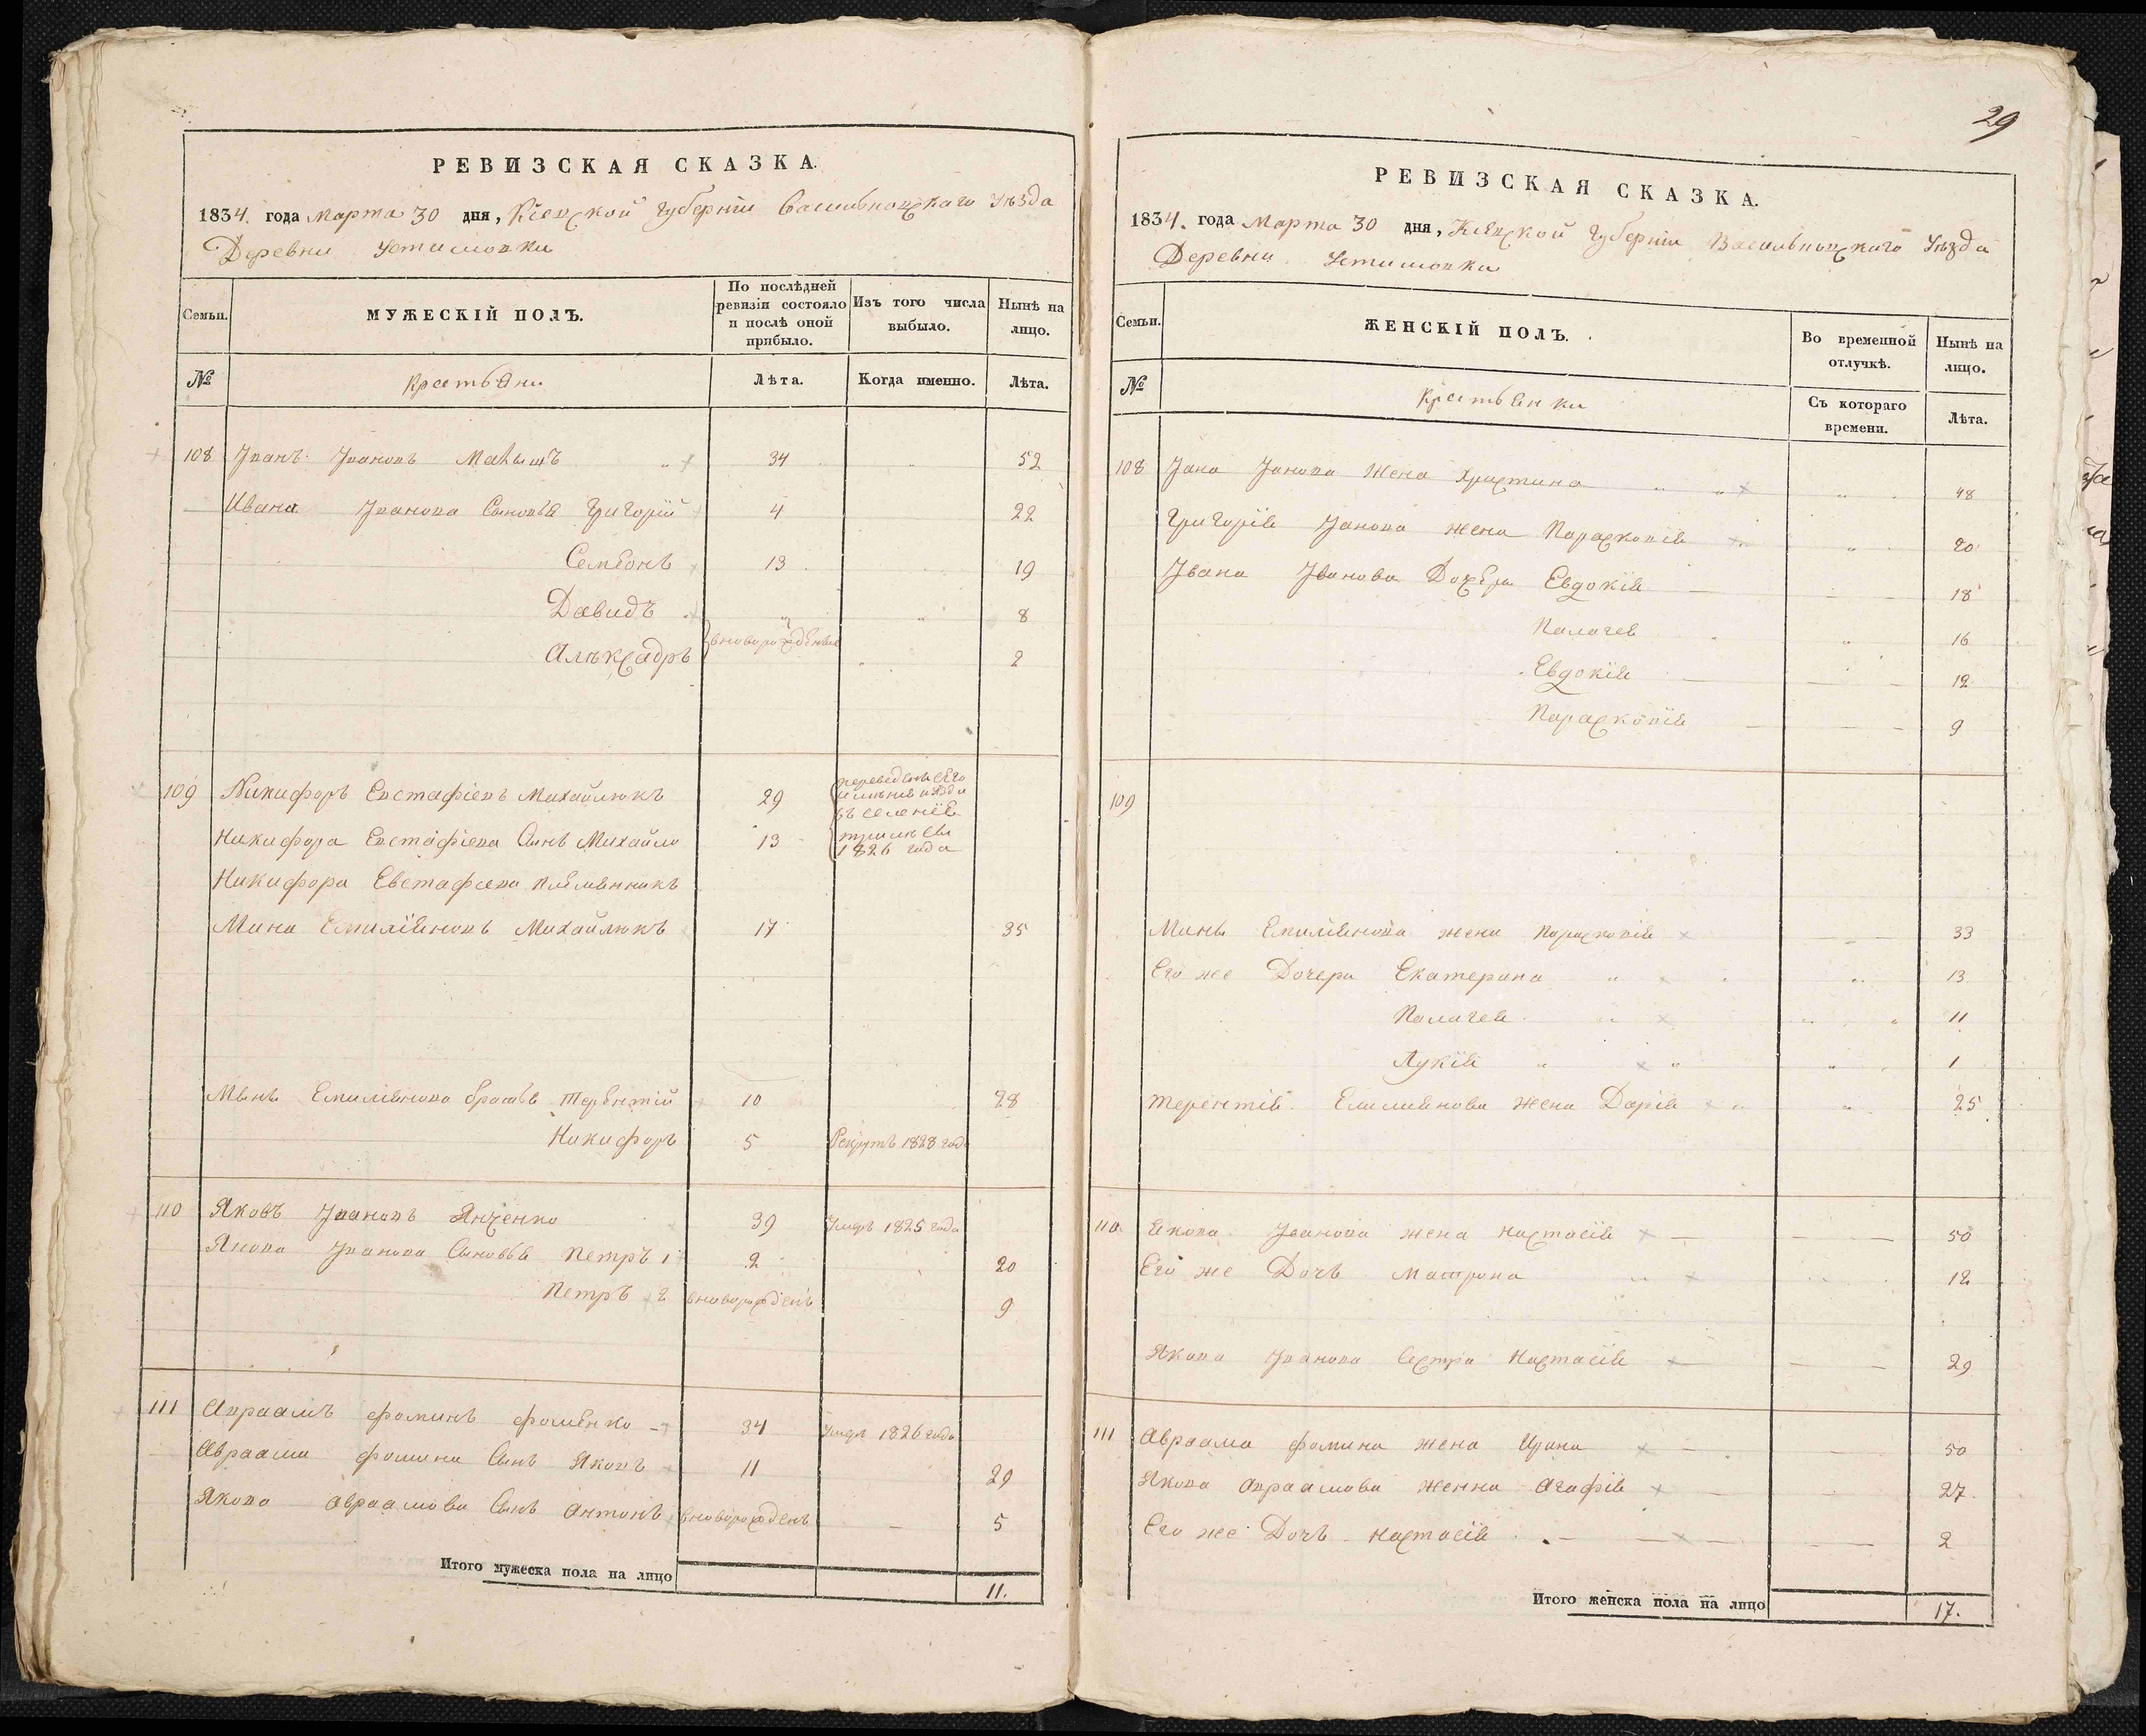 РЕВИЗСКАЯ СКАЗКА.
1834. года Марта 30 дня, Кіевской Губерніи Васильковскаго Уѣзда
Деревни Устимовки
Семьи.
МУЖЕСКІЙ ПОЛЪ.
По послѣдней ревизіи состояло и послѣ оной прибыло.
Изъ того числа выбыло.
Нынѣ на лицо.
№
Крестьяни
Лѣта.
Когда именно.
Лѣта.
108 Іванъ Івановъ 34 52
Ивана Іванова Сыновья Григорій 4 22
Семенъ 13 19
Давидъ " 8
Алексадръ вноворожденные 2
109 Никифоръ Евстафіевъ Михайлюкъ 29
въ селеніе
1826 года
Никифора Евстафіева Сынъ Михайло 13
Никифора Евстафіева племянникъ
Мина Емиліяновъ Михайлюкъ 17 35
Мины Емиліянова братья Терентій 10 28
Никифоръ 5 Рекрутъ 1828 года
110 Яковъ Івановъ Янченко 39 Умеръ 1825 года
Якова Іванова Сыновья Петръ 1 2 20
Петръ 2 вноворожденъ 9
111 Авраамъ Фоминъ Фоменко 34 Умеръ 1826 года
Авраама Фомина Сынъ Яковъ 11 29
Якова Авраамова Сынъ Антонъ вноворожденъ 5
Итого мужеска пола на лицо 11.
29
РЕВИЗСКАЯ СКАЗКА.
1834. года Марта 30 дня, Кіевской Губерніи Васильковскаго Уѣзда
Деревни Устимовки
Семьи.
ЖЕНСКІЙ ПОЛЪ.
Во временной отлучкѣ.
Нынѣ на лицо.
№
Крестьянки
Съ котораго времени.
Лѣта.
108 Івана Іванова Жена Христина 48
Григорія Іванова жена Парасковія 20
Івана Іванова Дочери Евдокія 18
Палагея 16
Евдокія 12
Парасковія 9
109
Мины Емиліянова жена Парасковія 33
Его же Дочери Екатерина 13
Палагея 11
Лукія 1
Терентія Емилиянова Жена Дарія 25
110 Якова Іванова жена Настасія 50
Его же Дочь Матрона 12
Якова Іванова Сестра Настасія 29
111 Авраама Фомина жена Ирина 50
Якова Авраамова женна Агафія 27
Его же Дочь Настасія 2
Итого женска пола на лицо 17.